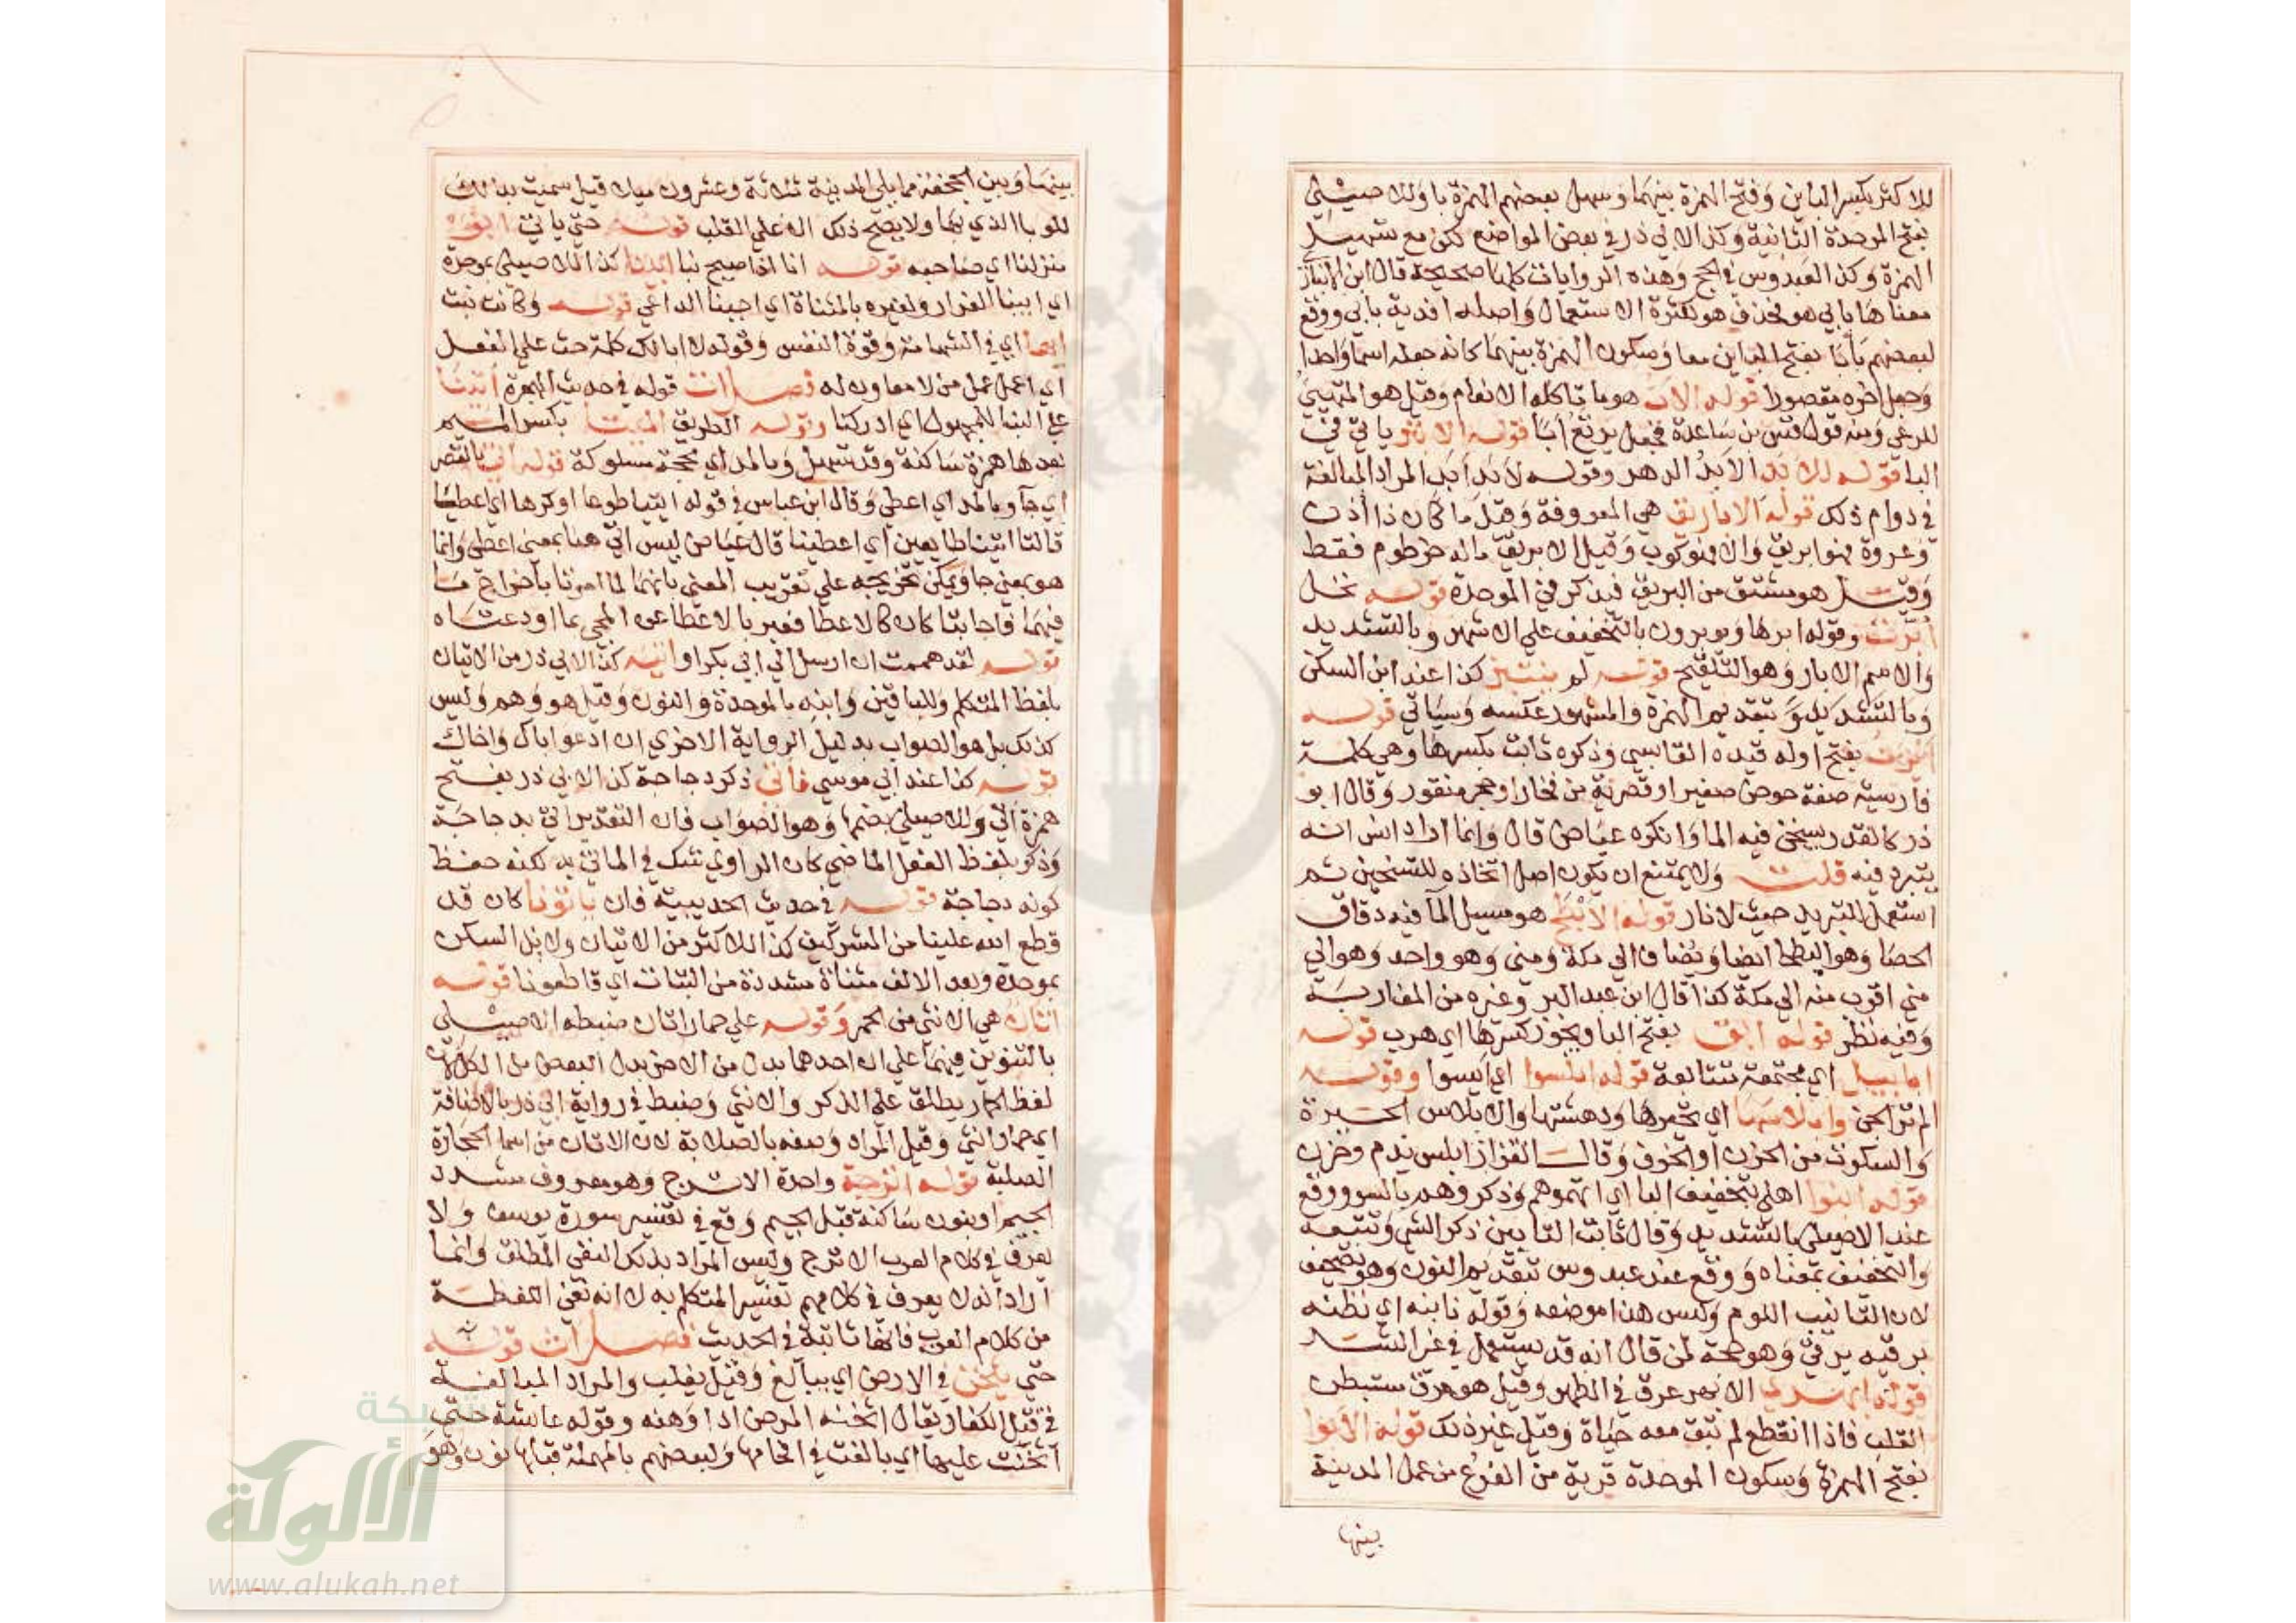 للاكثر بكسر الباين وفتح الهمزة بينهما وسهل بعضهم الهمزة باو للاصيلي
بفتح الموحدة الثانية وكذا لابي ذر في بعض المواضع لكن مع تسهيل
الهمزة وكذا لعبدوس في الحج وهذه الروايات كلها صحيحة قال ابن الانباري
معناها بابي هو فحذف هو لكثرة الاستعمال واصله افديه بابي ووقع
لبعضهم بأبا بفتح الباين معا وسكون الهمزة بينهما كانه جعله اسما واحدا
وجعل اخره مقصورا قوله الاب هو ما تاكله الانعام وقيل هو المتهيئ
للرعي ومنه قول قس بن ساعدة فجعل يرتع أبا قوله الابتر ياتي في
البا قوله للابد الابد الدهر وقوله لابد ابد المراد المبالغة
في دوام ذلك قوله الاباريق هي المعروفة وقيل ما كان ذا اذن
وعروة فهو ابريق والا فهو كوب وقيل الابريق ماله خرطوم فقط
وقيل هو مشتق من البريق فيذكر في الموحدة قوله نخل
ابرت وقوله ابرها ويوبرون بالتخفيف على الاشهر وبالتشديد
والاسم الابار وهو التلقيح قوله لم يبتئر كذا عند ابن السكن
وبالتشديد وبتقديم الهمزة والمشهور عكسه وسياتي قوله
ابزن بفتح اوله قيده القابسي وذكره ثابت بكسرها وهي كلمة
فارسية صفة حوض صغير او قصرية من فخار او حجر منقور وقال ابو
ذر كالقدر يسخن فيه الما وانكره عياض قال وانما اراد انس انه
يتبرد فيه قلت ولا يمتنع ان يكون اصل اتخاذه للتسخين ثم
استعمل للتبريد حيث لا نار قوله الابطح هو مسيل الما فيه دقاق
الحصا وهو البطحا ايضا ويضاف الي مكة ومني وهو واحد وهو الي
مني اقرب منه الي مكة كذا قال ابن عبد البر وغيره من المغاربة
وفيه نظر قوله ابق بفتح البا ويجوز كسرها اي هرب قوله
ابابيل اي مجتمعة متتابعة قوله ابلسوا اي ايسوا وقوله
الم تر الجن وابلاسها اي تحيرها ودهشتها والابلاس الحيرة
والسكوت من الحزن او الخوف وقال القزاز ابلس ندم وحزن
قوله ابنوا اهلي بتخفيف البا اي اتهموهم وذكروهم بالسو ووقع
عند الاصيلي بالتشديد وقال ثابت التابين ذكر الشي وتتبعه
والتخفيف بمعناه ووقع عند عبدوس بتقديم النون وهو تصحيف
لان التانيب اللوم وليس هذا موضعه وقوله نابنه اي نظنه
برقيه يرقي وهو حجة لمن قال انه قد يستعمل في غير الشر
قوله ابهري الابهر عرق في الظهر وقيل هو عرق مستبطن
القلب فاذا انقطع لم تبق معه حياة وقيل غير ذلك قوله الابوا
بفتح الهمزة وسكون الموحدة قرية من الفرع من عمل المدينة
بينها
بينها وبين الجحفة مما يلي المدينة ثلاثة وعشرون ميلا قيل سميت بذلك
للوبا الذي بها ولا يصح ذلك الا على القلب قوله حتي ياتي ابو
منزلنا اي صاحبه قوله انا اذا صيح بنا ابينا كذا للاصيلي بموحدة
اي ابينا الفرار ولغيره بالمثناة اي اجبنا الداعي قوله وكانت بنت
ابيها اي في الشهامة وقوة النفس وقوله لا ابا لك كلمة حث على الفعل
اي اعمل عمل من لا معاون له فصل ات قوله في حديث الهجرة أتينا
علي البنا للمجهول اي ادركنا وقوله الطريق الميتا بكسر الميم
بعدها همزة ساكنة وقد تسهل وبالمد اي محجة مسلوكة قوله اتي بالقصر
اي جآ وبالمد اي اعطي وقال ابن عباس في قوله ايتيا طوعا او كرها اي اعطيا
قالتا اتينا طايعين اي اعطينا قال عياض ليس اتي هنا بمعني اعطي وانما
هو بمعني جا ويمكن تخريجه علي تقريب المعني بانهما لما امرتا باخراج ما
فيهما فاجابتا كان كالاعطا فعبر بالاعطا عن المجي بما اودعتاه
قوله لقد هممت ان ارسل الي ابي بكر او اتيه كذا لابي ذر من الاتيان
بلفظ المتكلم وللباقين وابنه بالموحدة والنون وقيل هو وهم وليس
كذلك بل هو الصواب بدليل الرواية الاخري ان ادعو اباك واخاك
قوله كنا عند ابي موسي فاتي ذكر دجاجة كذا لابي ذر بفتح
همزة اتي وللاصيلي بضمها وهو الصواب فان التقدير اتي بدجاجة
وذكر بلفظ الفعل الماضي كان الراوي شك في الماتي به لكنه حفظ
كونه دجاجة قوله في حديث الحديبية فان ياتونا كان قد
قطع الله علينا من المشركين كذا للاكثر من الاتيان ولابن السكن
بموحدة وبعد الالف مثناة مشددة من البتات اي قاطعونا قوله
اتان هي الانثي من الحمر وقوله علي حمار اتان ضبطه الاصيلي
بالتنوين فيهما علي ان احدهما بدل من الاخر بدل البعض من الكل لان
لفظ الحمار يطلق علي الذكر والانثي وضبط في رواية ابي ذر بالاضافة
اي حمار انثي وقيل المراد وصفه بالصلابة لان الاتان من اسما الحجارة
الصلبة قوله اترجة واحدة الاترج وهو معروف مشدد
الجيم او بنون ساكنة قبل الجيم وقع في تفسير سورة يوسف ولا
يعرف في كلام العرب الاترج وليس المراد بذلك النفي المطلق وانما
اراد انه لا يعرف في كلامهم تفسير المتكا به لا انه نفي اللفظة
من كلام العرب فانها ثابتة في الحديث فصل اث قوله
حتي يثخن في الارض اي يبالغ وقيل يغلب والمراد المبالغة
في قتل الكفار يقال اثخنه المرض اذا وهنه وقوله عايشة حتي
اثخنت عليها اي بالغت في اثخامها ولبعضهم بالمهملة قبلها نون وهو
شبكة
الألوكة
www.alukah.net